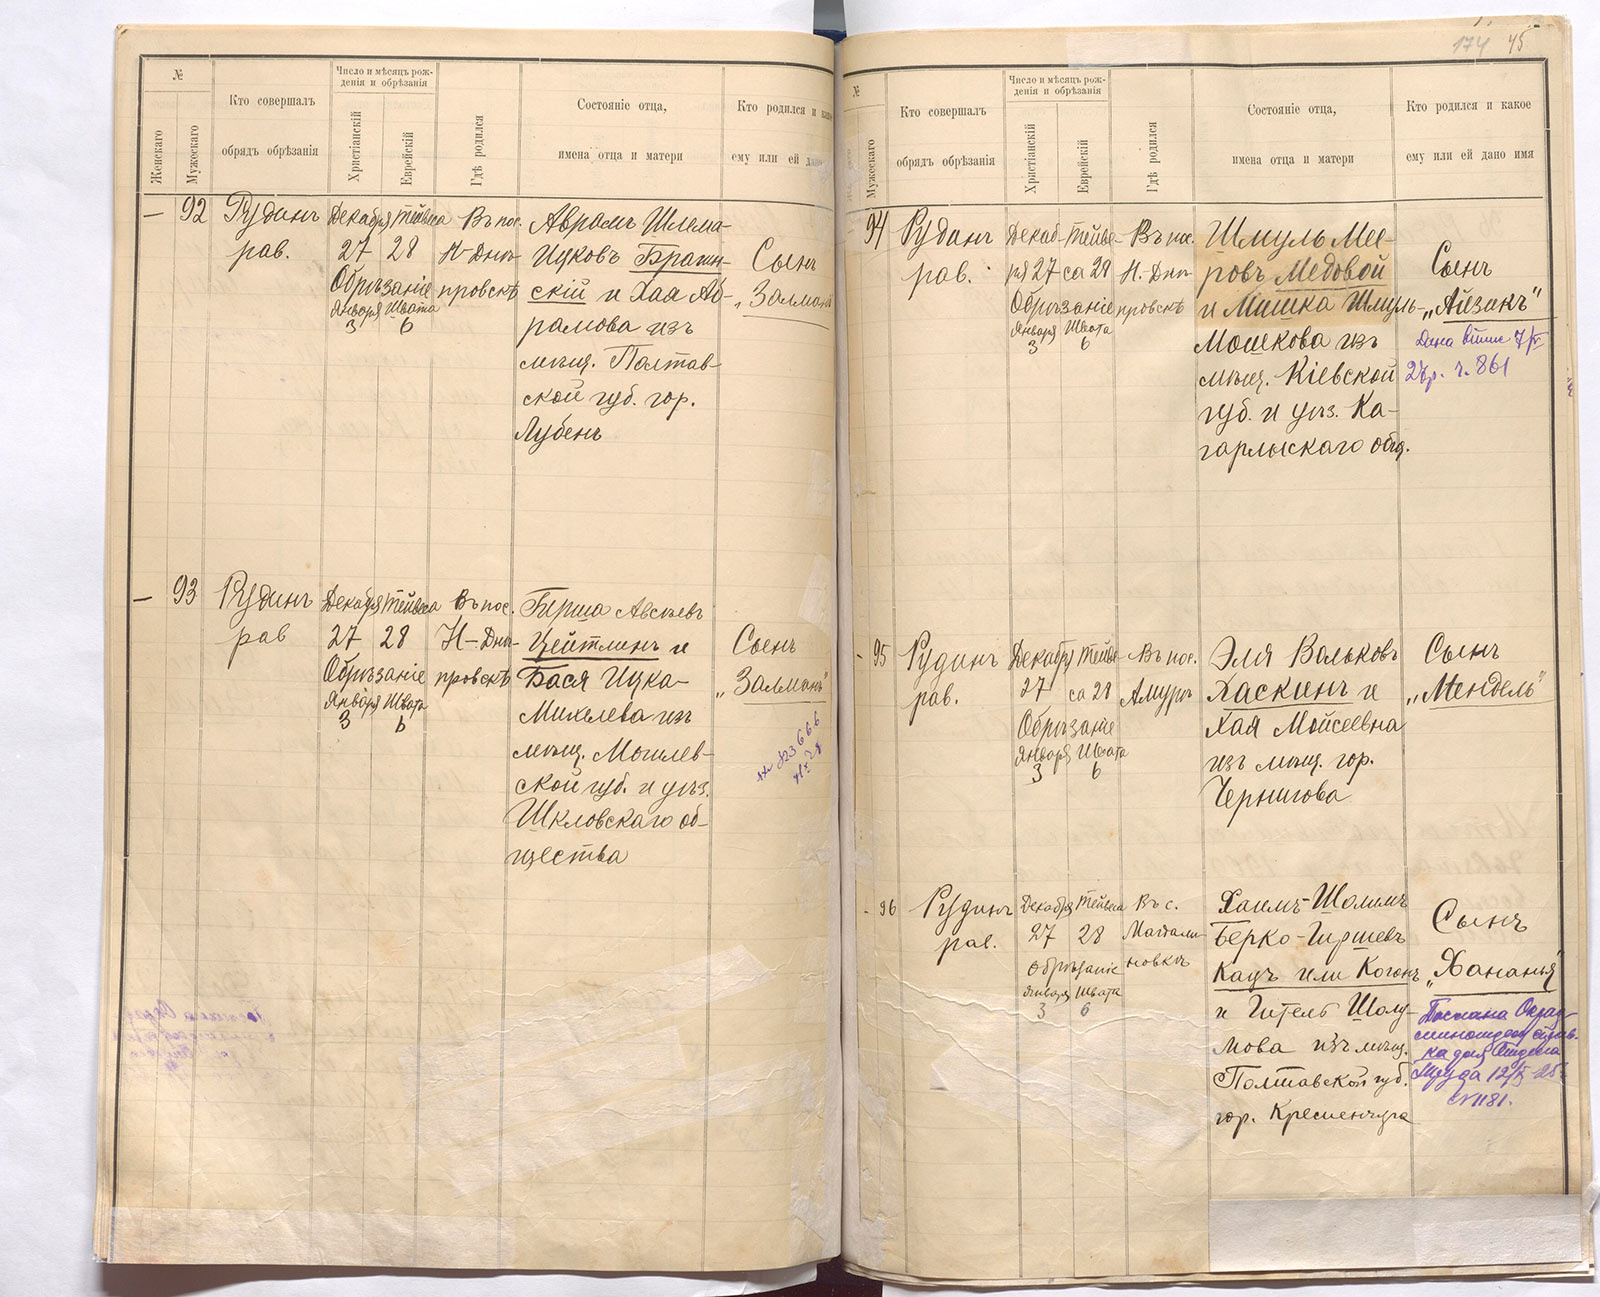 №
Женскаго
Мужескаго
Кто совершалъ
обрядъ обрѣзанія
Число и мѣсяцъ рож-
денія и обрѣзанія
Христіанскій
Еврейскій
Гдѣ родился
Состояніе отца,
имена отца и матери
Кто родился и
ему или ей дано
— 92
Рудинъ
рав.
Декабря
27
Тейвеса
28
Обрѣзаніе
Января
3
Швата
6
Въ пос.
Н-Днѣ-
провскѣ
Аврамъ Шлема-
Ицковъ Брагин-
скій и Хая Аб-
рамова изъ
мѣщ. Полтав-
ской губ. гор.
Лубенъ
Сынъ
„Залманъ
— 93
Рудинъ
рав
Декабря
27
Тейвеса
28
Обрѣзаніе
Января
3
Швата
6
Въ пос.
Н-Днѣ-
провскѣ
Гирша Авсѣевъ
Цейтлинъ и
Бася Ицка-
Михелева изъ
мѣщ. Могилев-
ской губ. и уѣз.
Шкловскаго об-
щества
Сынъ
„Залманъ"
174 45
№
Мужескаго
Кто совершалъ
обрядъ обрѣзанія
Число и мѣсяцъ рож-
денія и обрѣзанія
Христіанскій
Еврейскій
Гдѣ родился
Состояніе отца,
имена отца и матери
Кто родился и какое
ему или ей дано имя
94
Рудинъ
рав.
Декаб-
ря 27
Тейве-
са 28
Обрѣзаніе
Января
3
Швата
6
Въ пос.
Н.-Днѣ-
провскѣ
Шмуль Мее-
ровъ Медовой
и Мишка Шмуль-
Мошкова изъ
мѣщ. Кіевской
губ. и уѣз. Ка-
гарлыскаго общ.
Сынъ
„Айзикъ"
27р. ч. 861
- 95
Рудинъ
рав.
Декабря
27
Тейве-
са 28
Обрѣзаніе
Января
3
Швата
6
Въ пос.
Амуръ
Эля Вольковъ
Хаскинъ и
Хая Мойсеевна
изъ мѣщ. гор.
Чернигова
Сынъ
„Мендель"
- 96
Рудинъ
рав.
Декабря
27
Тейвеса
28
Обрѣзаніе
Января
3
Швата
6
Въ с.
Магдали-
новкѣ
Хаимъ-Шолимъ
Берко-Гиршевъ
Кацъ или Когонъ
и Гитель Шолу-
мова изъ мѣщ.
Полтавской губ.
гор. Кременчуга
Сынъ
„Хананья"
Труда 12/X 25
№1181.